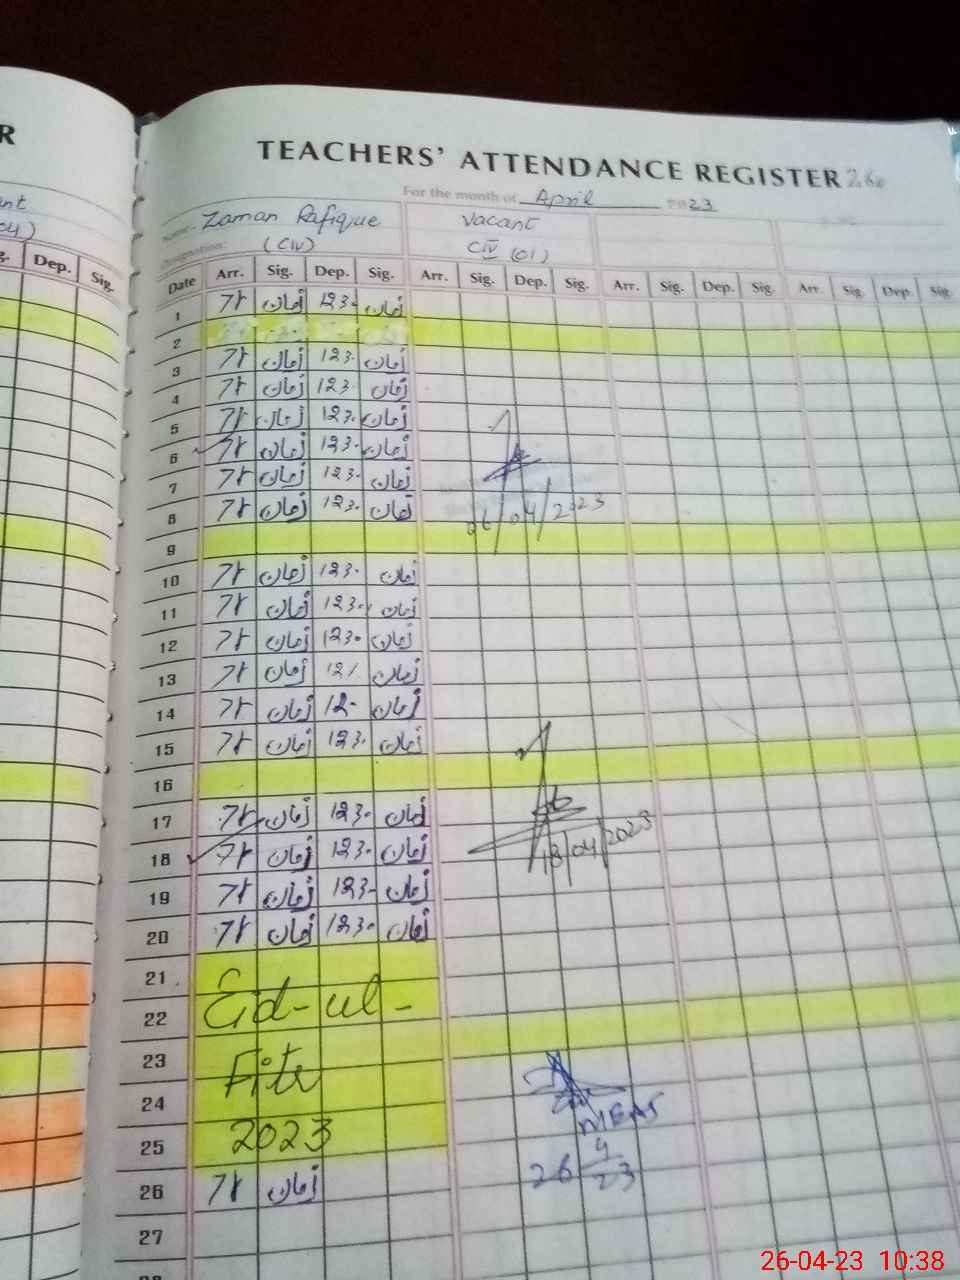 R
TEACHERS' ATTENDANCE REGISTER
For the month of April 23
Name: Zaman Rafique Vacant
Designation: (CIV) CIV (01)
Dep. Sig.
Date Arr. Sig. Dep. Sig. Arr. Sig. Dep. Sig. Arr. Sig. Dep. Sig. Arr. Sig. Dep. Sig.
1 زمان 123. زمان
2
3 زمان 123. زمان
4 زمان 123 زمان
5 زمان 123. زمان
6 زمان 123. زمان
7 زمان 123. زمان
8 زمان 123. زمان
06/04/2023
9
10 زمان 123. زمان
11 زمان 123. زمان
12 زمان 123. زمان
13 زمان 12/ زمان
14 زمان 12- زمان
15 زمان 123. زمان
16
17 زمان 123. زمان
18 زمان 123. زمان
18/04/2023
19 زمان 123. زمان
20 زمان 123. زمان
21
22 Eid-ul-
23
24 Fitr
25 2023
MEAS
26 زمان
26 4/23
27
28
26-04-23 10:38